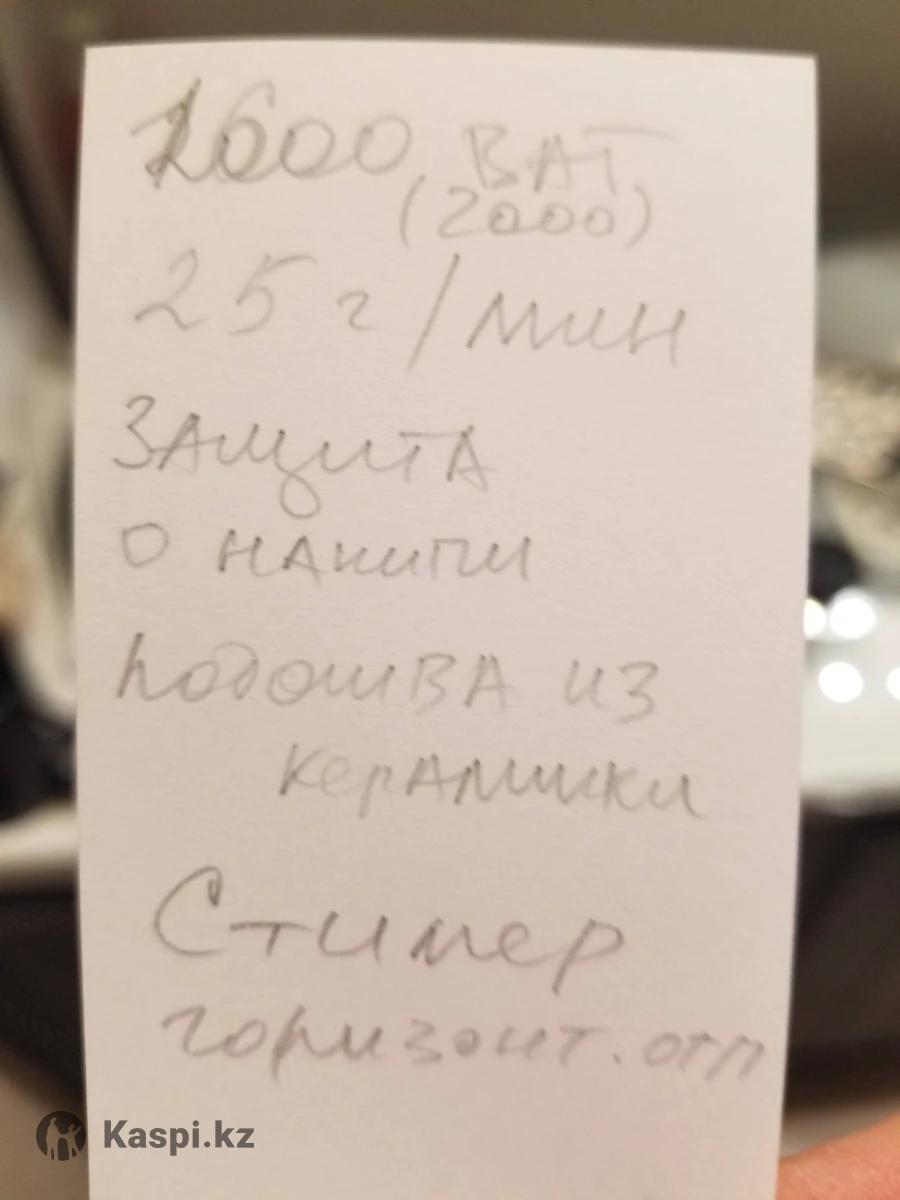 1600 ВАТ
(2000)
25 г/мин
ЗАщитА
о нАкипи
подошвА из
керАмики
Стимер
горизонт. отп
Kaspi.kz